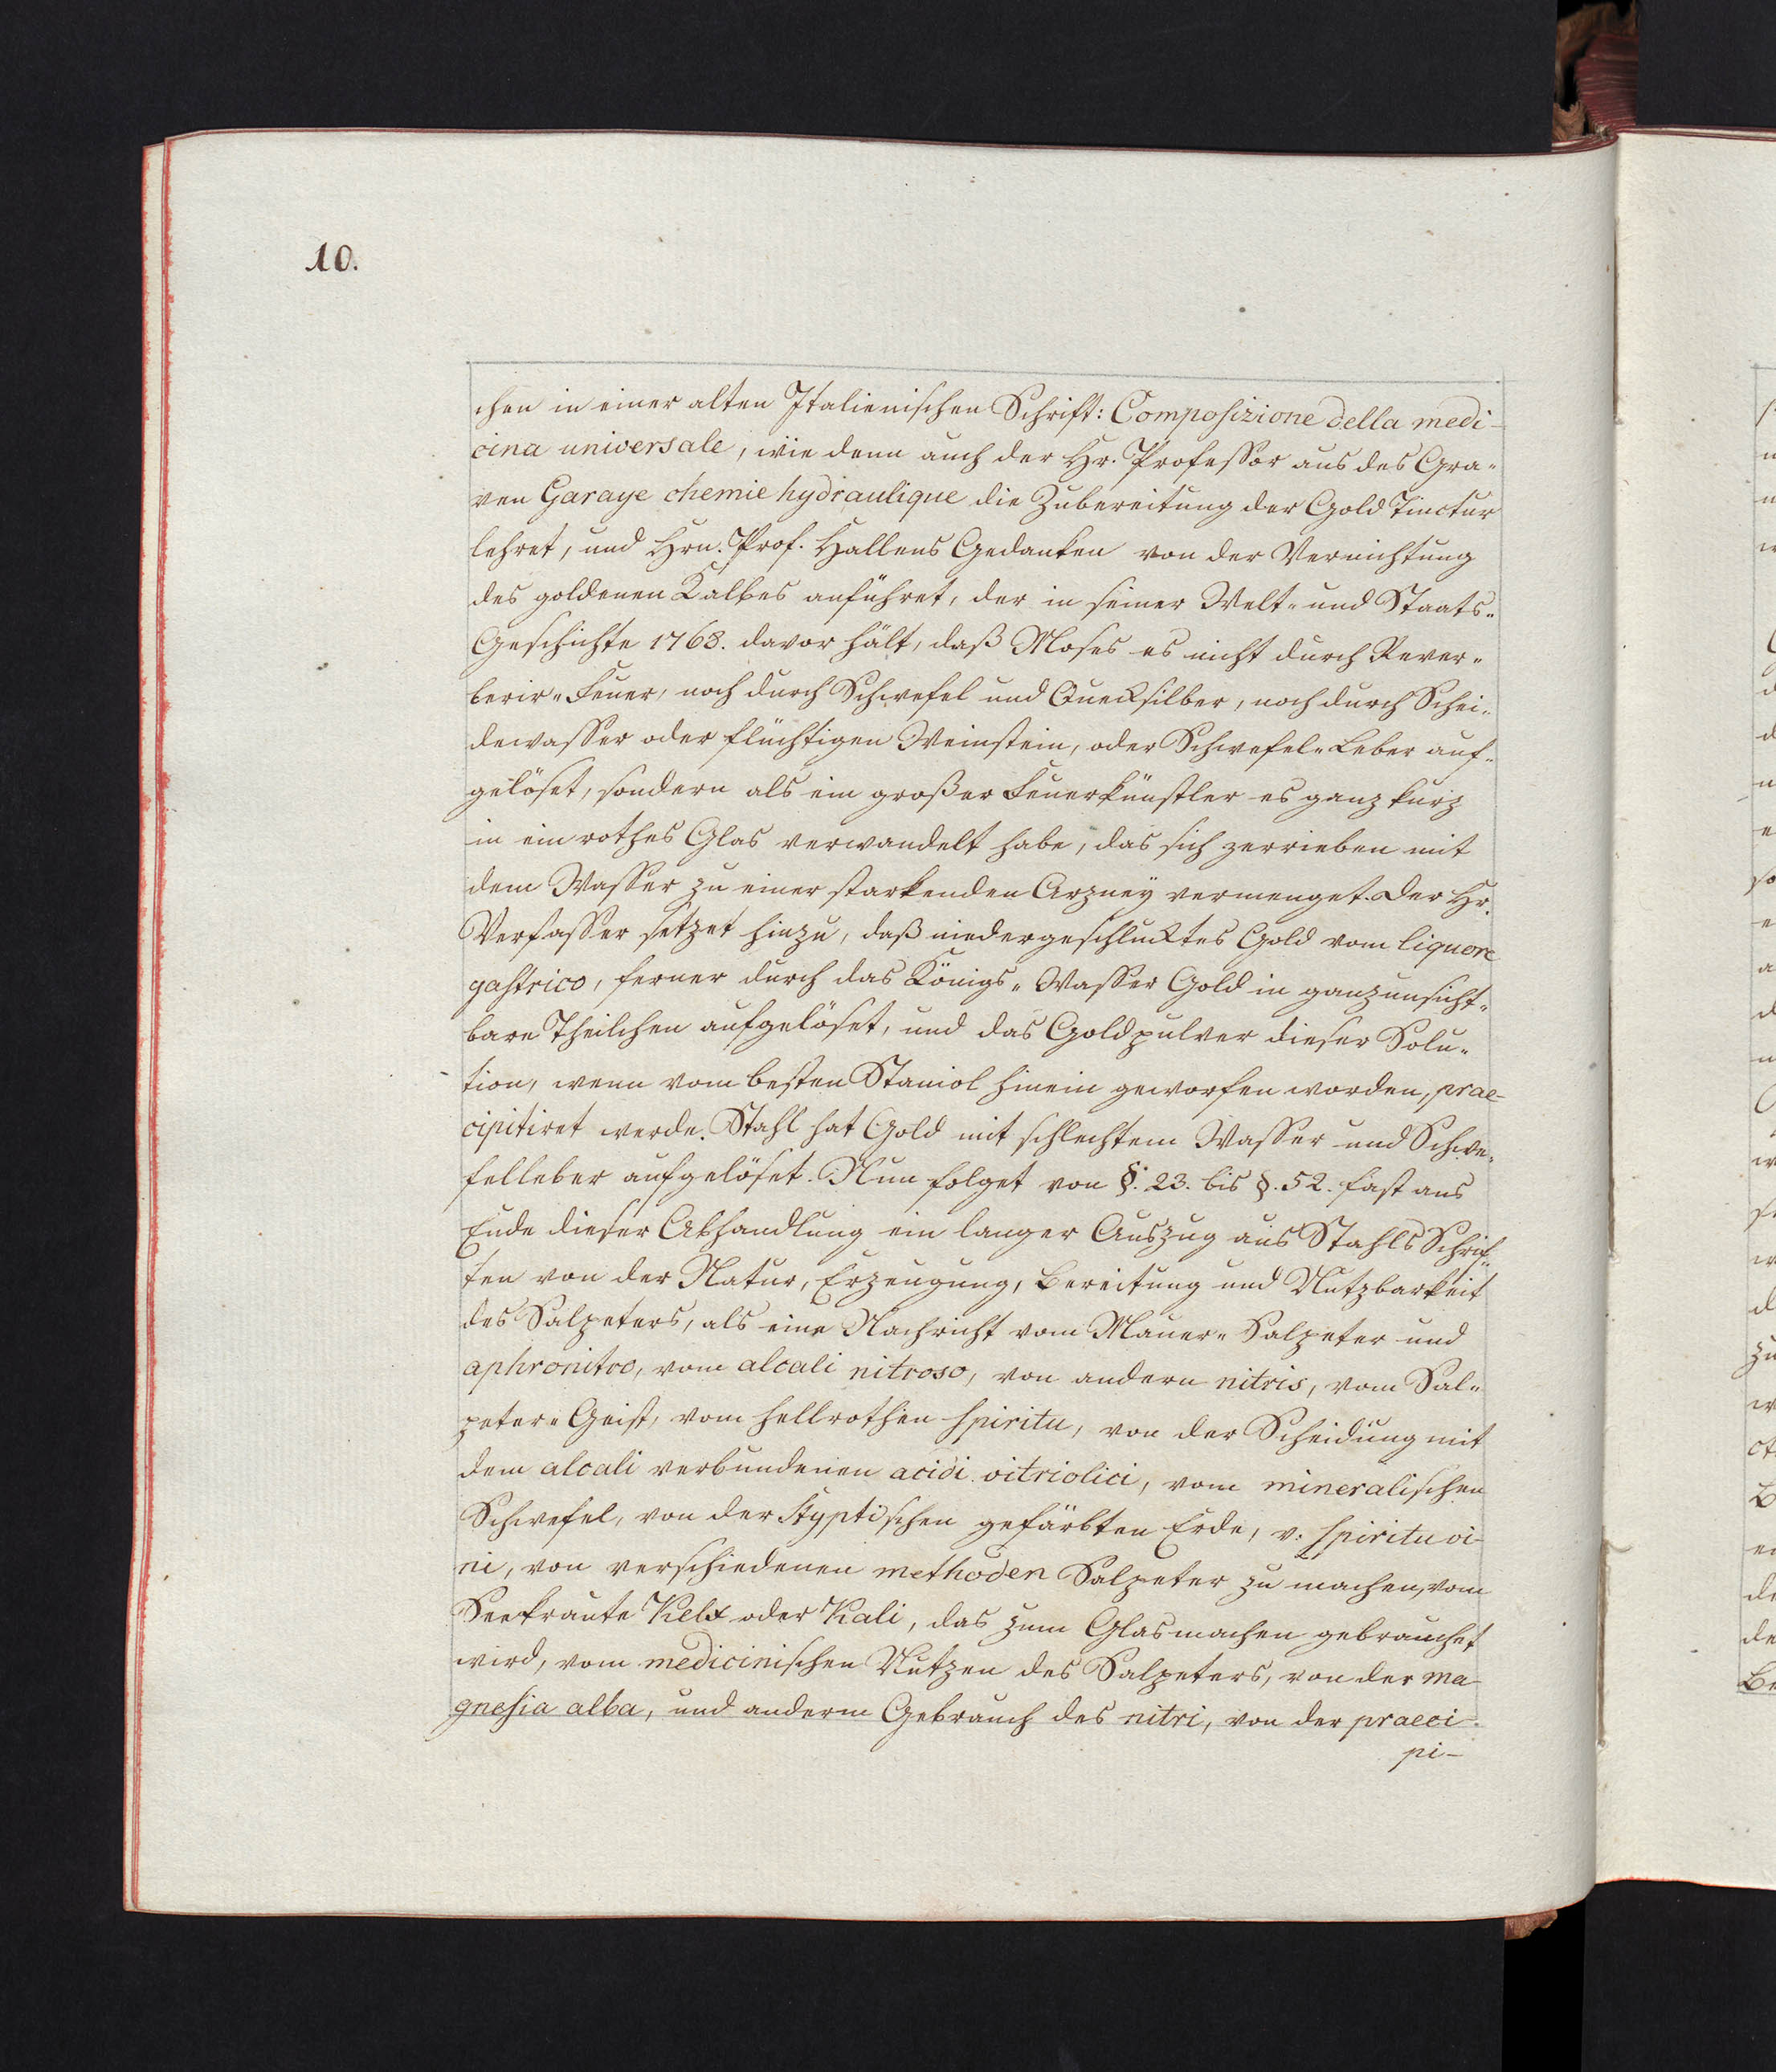 10.
chen in einer alten Italienischen Schrift: Composizione della medi-
cina universale, wie denn auch der Hr. Professor aus des Gra-
ven Garaye chemie hydraulique die Zubereitung der Gold Tinctur
lehret, und Hrn. Prof. Hallens Gedanken von der Vernichtung
des goldenen Kalbes anführet, der in seiner Welt- und Staats-
Geschichte 1768. davor hält, daß Moses es nicht durch Rever-
berir-Feuer, noch durch Schwefel und Quecksilber, noch durch Schei-
dewasser oder flüchtigen Weinstein, oder Schwefel-Leber auf-
gelöset, sondern als ein großer Feuerkünstler es ganz kurz
in ein rothes Glas verwandelt habe, das sich zerrieben mit
dem Wasser zu einer starkenden Arzney vermenget. Der Hr.
Verfasser setzet hinzu, daß niedergeschlucktes Gold vom liquore
gastrico, ferner durch das Königs-Wasser Gold in ganz unsicht-
bare Theilchen aufgelöset, und das Goldpulver dieser Solu-
tion, wenn vom besten Staniol hinein geworfen worden, prae-
cipitiret werde. Stahl hat Gold mit schlechtem Wasser und Schwe-
felleber aufgelöset. Nun folget von §. 23. bis §. 52. fast ans
Ende dieser Abhandlung ein langer Auszug aus Stahls Schrif-
ten von der Natur, Erzeugung, Bereitung und Nutzbarkeit
des Salpeters, als eine Nachricht vom Mauer-Salpeter und
aphronitro, vom alcali nitroso, von andern nitris, vom Sal-
peter-Geist, vom hellrothen spiritu, von der Scheidung mit
dem alcali verbundenen acidi vitriolici, vom mineralischen
Schwefel, von der styptischen gefärbten Erde, v. spiritu vi-
ni, von verschiedenen methoden Salpeter zu machen, vom
Seekraute Kelx oder Kali, das zum Glasmachen gebrauchet
wird, vom medicinischen Nutzen des Salpeters, von der ma-
gnesia alba, und anderm Gebrauch des nitri, von der praeci-
pi-